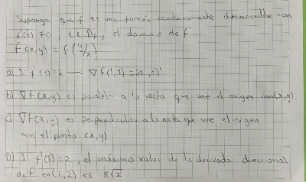 Suponga que f es una función continuamente diferenciable con
f(1) ≠ 0, el domino de f
F(x,y) = f(y/x)
a) Si f'(1)=2 ∇F(1,1)=
b) ∇F(x,y) es paralelo a la recta que une el origen con (x,y)
c) ∇F(x,y) es perpendicular a la recta que une el origen
con el punto (x,y)
D) Si f'(1)=2, el máximo valor de la derivada direccional
de F en (1,2) es